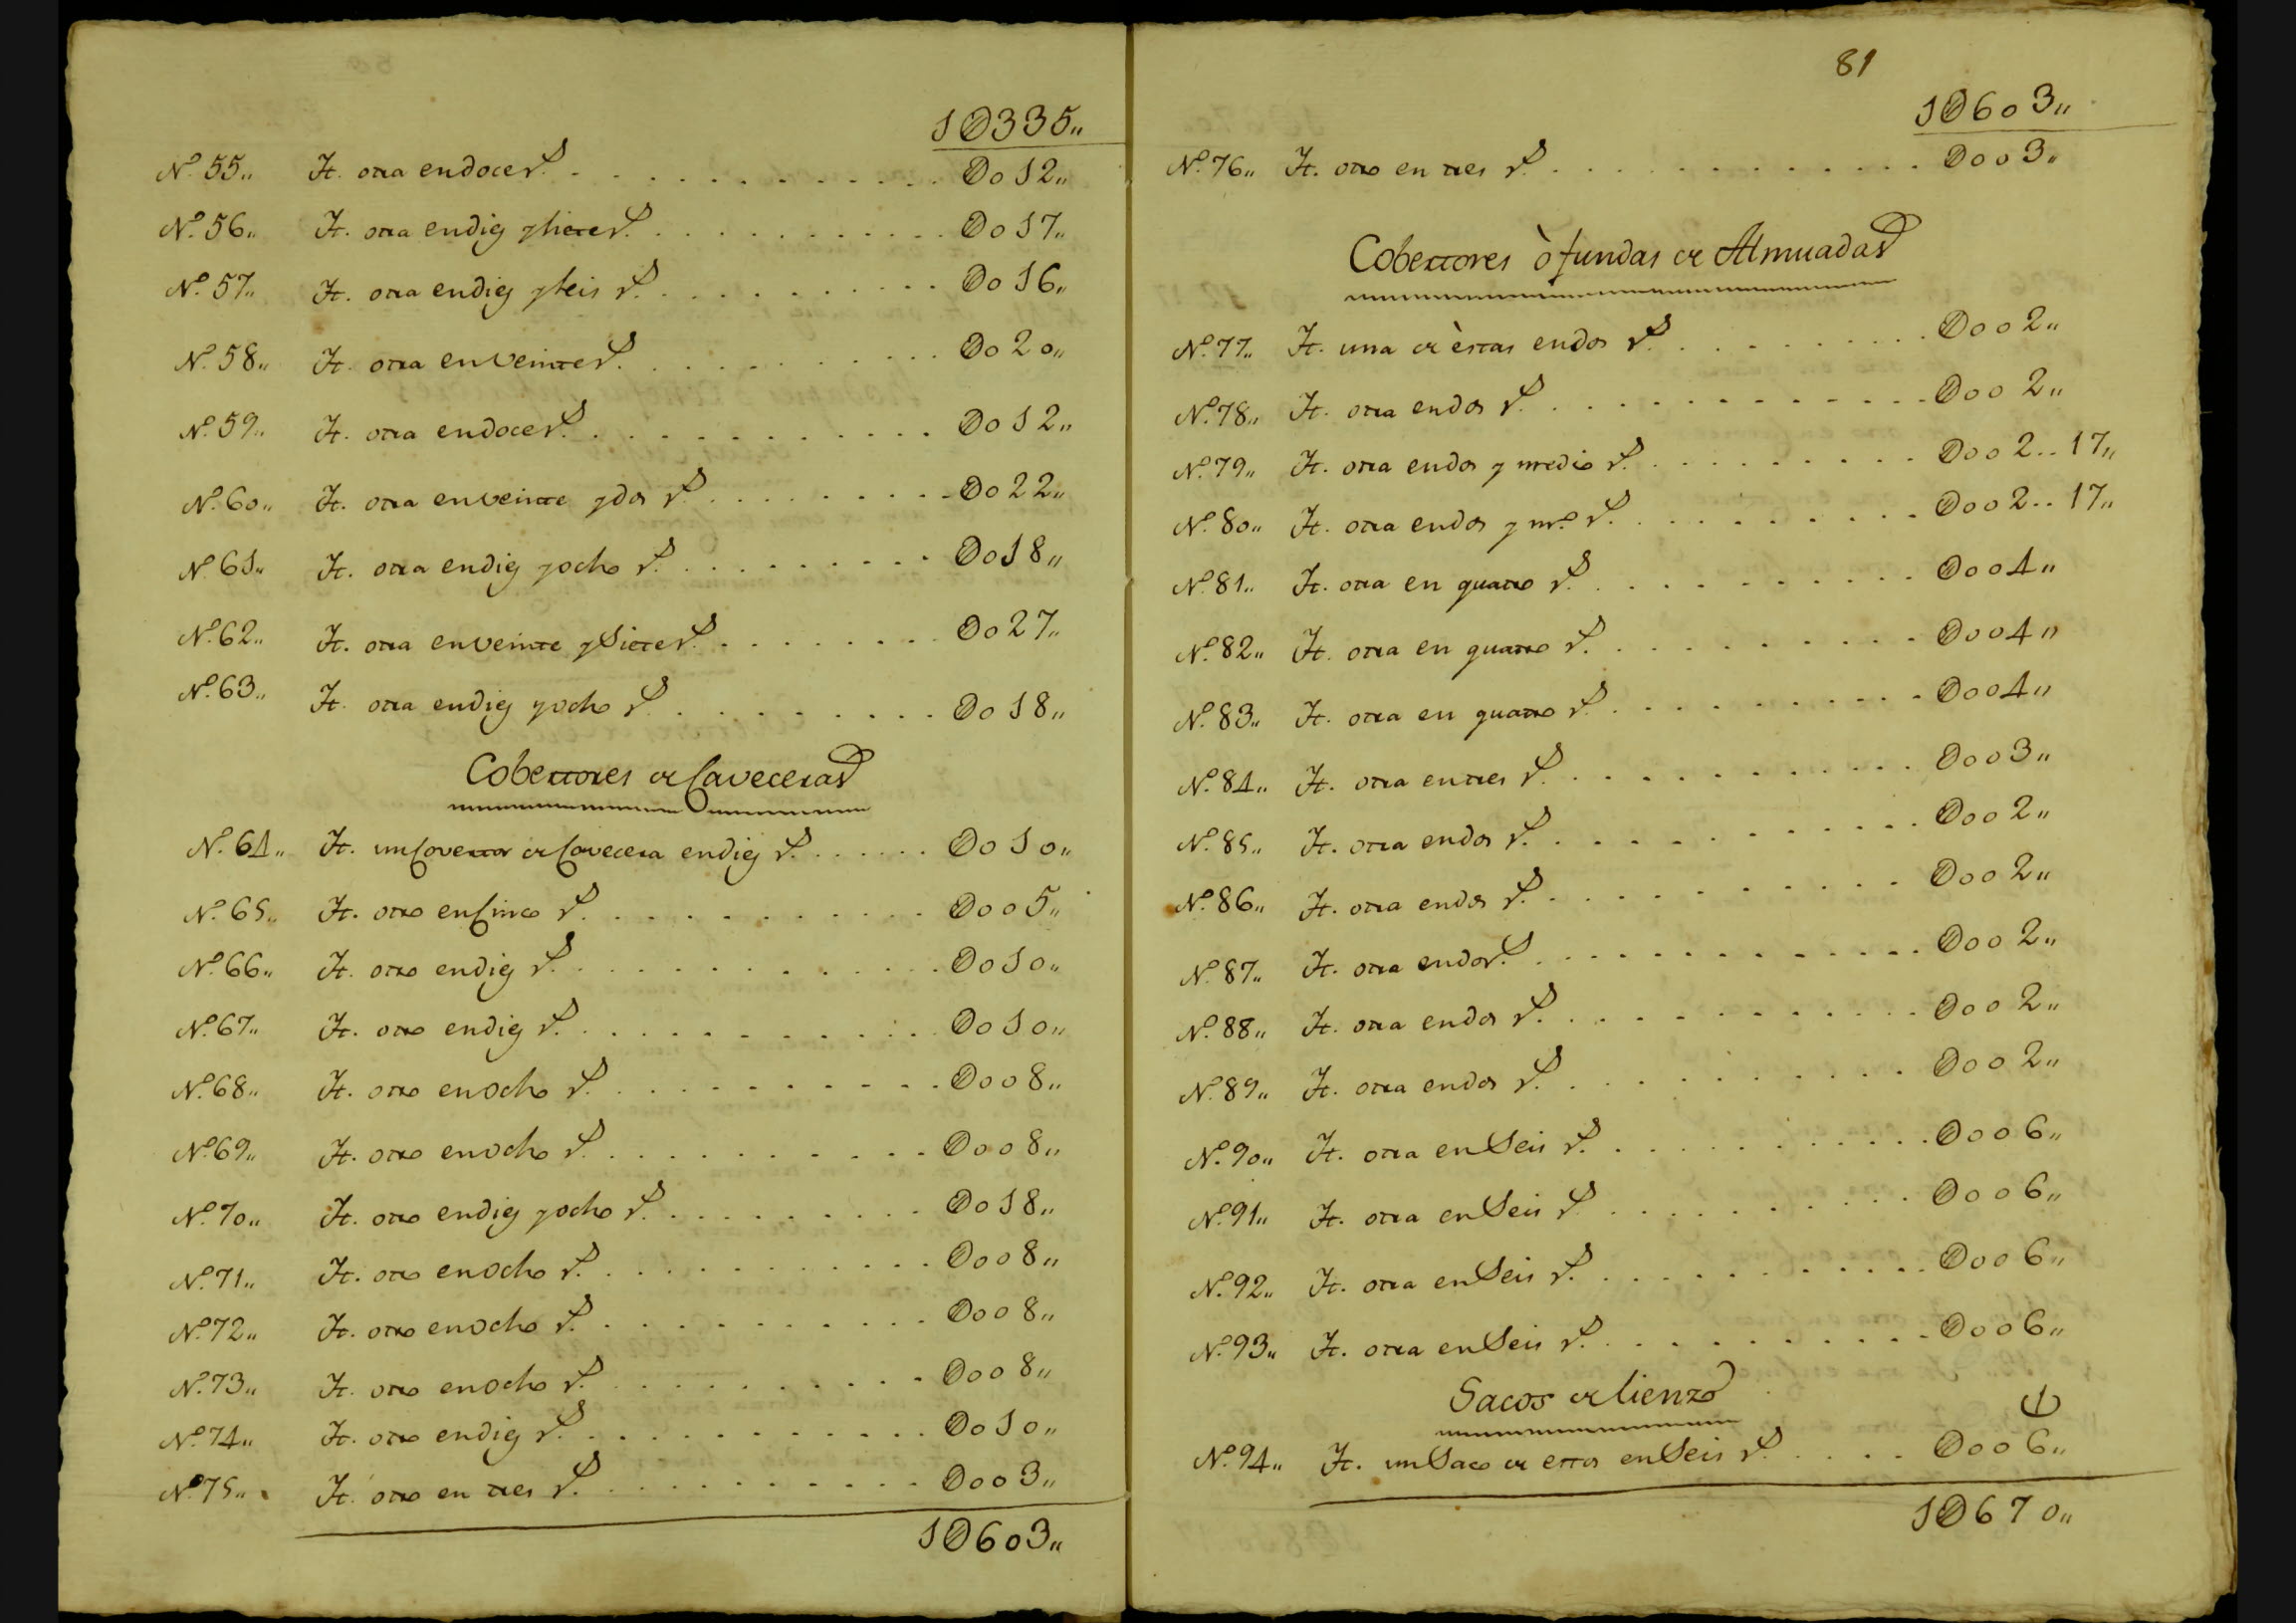 1U335,,
Nº. 55,, It. otra en doce rs. . . . . . . . . . . . . U012,,
Nº. 56,, It. otra en diez y siete rs. . . . . . . . . . . . U017,,
Nº. 57,, It. otra en diez y seis rs. . . . . . . . . . . U016,,
Nº. 58,, It. otra en veinte rs. . . . . . . . . . . U020,,
Nº. 59,, It. otra en doce rs. . . . . . . . . . . . U012,,
Nº. 60,, It. otra en veinte y dos rs. . . . . . . . . . U022,,
Nº. 61,, It. otra en diez y ocho rs. . . . . . . . . . U018,,
Nº. 62,, It. otra en veinte y siete rs. . . . . . . . . U027,,
Nº. 63,, It. otra en diez y ocho rs. . . . . . . . . . U018,,
Cobertores de Caveceras
Nº. 64,, It. un Covertor de Cavecera en diez rs. . . . . . . U010,,
Nº. 65,, It. otro en Cinco rs. . . . . . . . . . . . U005,,
Nº. 66,, It. otro en diez rs. . . . . . . . . . . . U010,,
Nº. 67,, It. otro en diez rs. . . . . . . . . . . . U010,,
Nº. 68,, It. otro en ocho rs. . . . . . . . . . . U008,,
Nº. 69,, It. otro en ocho rs. . . . . . . . . . . U008,,
Nº. 70,, It. otro en diez y ocho rs. . . . . . . . . . U018,,
Nº. 71,, It. otro en ocho rs. . . . . . . . . . . . U008,,
Nº. 72,, It. otro en ocho rs. . . . . . . . . . . U008,,
Nº. 73,, It. otro en ocho rs. . . . . . . . . . . U008,,
Nº. 74,, It. otro en diez rs. . . . . . . . . . . . U010,,
Nº. 75,, It. otro en tres rs. . . . . . . . . . . U003,,
1U603,,
81
1U603,,
Nº. 76,, It. otro en tres rs. . . . . . . . . . . . . U003,,
Cobertores ò fundas de Almuadas
Nº. 77,, It. una de èstas en dos rs. . . . . . . . . . U002,,
Nº. 78,, It. otra en dos rs. . . . . . . . . . . . . U002,,
Nº. 79,, It. otra en dos y medio rs. . . . . . . . . . U002.. 17,,
Nº. 80,, It. otra en dos y mº. rs. . . . . . . . . . . U002.. 17,,
Nº. 81,, It. otra en quatro rs. . . . . . . . . . . U004,,
Nº. 82,, It. otra en quatro rs. . . . . . . . . . . U004,,
Nº. 83,, It. otra en quatro rs. . . . . . . . . . . U004,,
Nº. 84,, It. otra en tres rs. . . . . . . . . . . . U003,,
Nº. 85,, It. otra en dos rs. . . . . . . . . . . . U002,,
Nº. 86,, It. otra en dos rs. . . . . . . . . . . . U002,,
Nº. 87,, It. otra en dos rs. . . . . . . . . . . . . U002,,
Nº. 88,, It. otra en dos rs. . . . . . . . . . . . U002,,
Nº. 89,, It. otra en dos rs. . . . . . . . . . . . U002,,
Nº. 90,, It. otra en Seis rs. . . . . . . . . . . U006,,
Nº. 91,, It. otra en Seis rs. . . . . . . . . . U006,,
Nº. 92,, It. otra en Seis rs. . . . . . . . . . . U006,,
Nº. 93,, It. otra en Seis rs. . . . . . . . . . . U006,,
Sacos de lienzo
Nº. 94,, It. un Saco de estos en Seis rs. . . . . U006,,
1U670,,